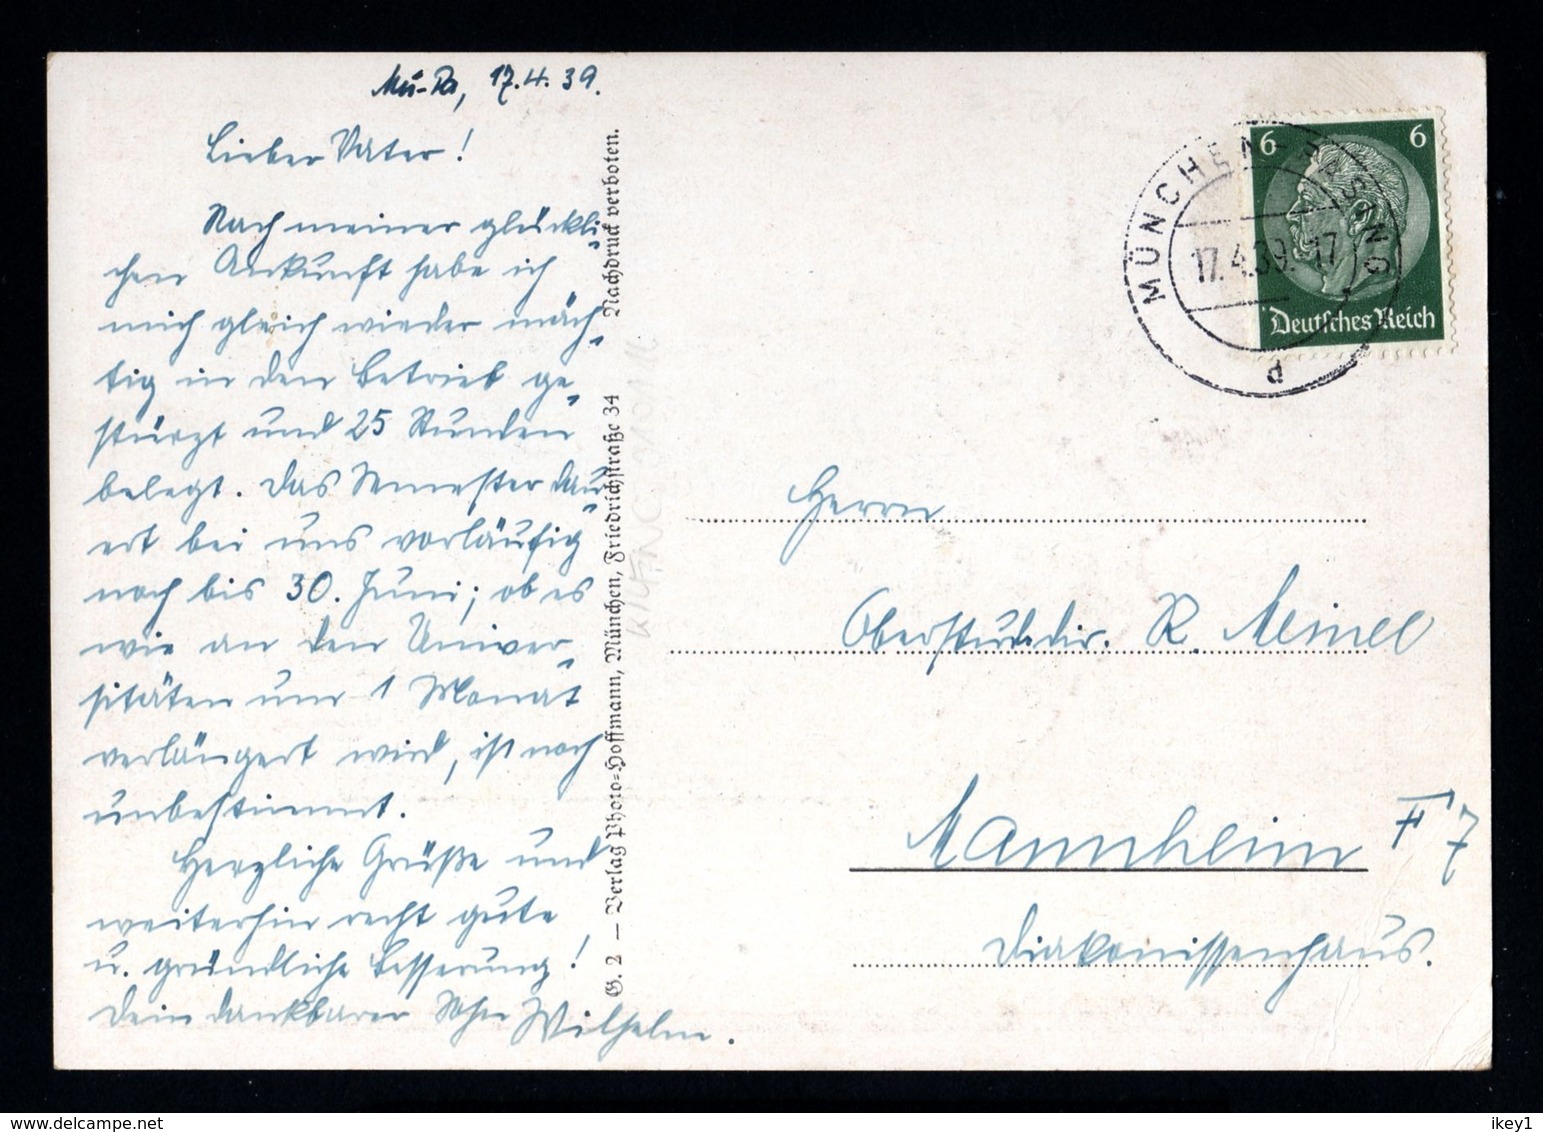 Mü-Pa, 17.4.39.
Lieber Vater!
Nach meiner glückli-
chen Ankunft habe ich
mich gleich wieder mäch-
tig in den Betrieb ge-
stürzt und 25 Stunden
belegt. Das Semester dau-
ert bei uns vorläufig
noch bis 30. Juni; ob es
wie an den Univer-
sitäten um 1 Monat
verlängert wird, ist noch
unbestimmt.
Herzliche Grüße und
weiterhin recht gute
u. gründliche Besserung!
Dein dankbarer Sohn Wilhelm.
G. 2 — Verlag Photo-Hoffmann, München, Friedrichstraße 34 Nachdruck verboten.
6 6
Deutsches Reich
MÜNCHEN-PASING
17.4.39.-17
d
Herrn
Oberstud.dir. R. Meinel
Mannheim F 7
Diakonissenhaus.
delcampe.net
ikey1